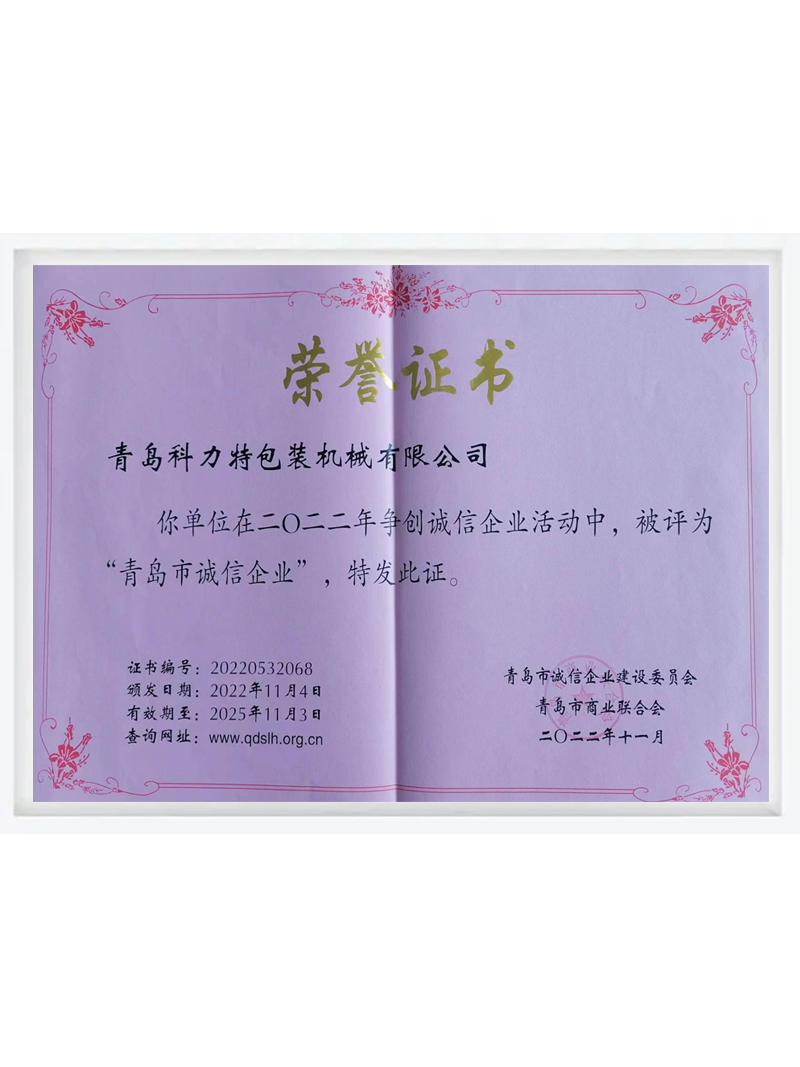 荣誉证书
青岛科力特包装机械有限公司
你单位在二〇二二年争创诚信企业活动中，被评为
“青岛市诚信企业”，特发此证。
证书编号：20220532068
颁发日期：2022年11月4日
有效期至：2025年11月3日
查询网址：www.qdslh.org.cn
青岛市诚信企业建设委员会
青岛市商业联合会
二〇二二年十一月